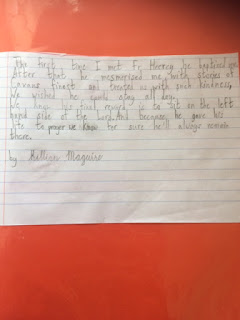 The first time I met Fr. he baptised me.
After that he mesmerised me with stories of
Cavans finest and treated us with such kindness,
We wished he could stay all day.
We know his final reward is to sit on the left
hand side of the Lord. And because he gave his
life to prayer we know for sure he'll always remain
there.
by Killian Maguire